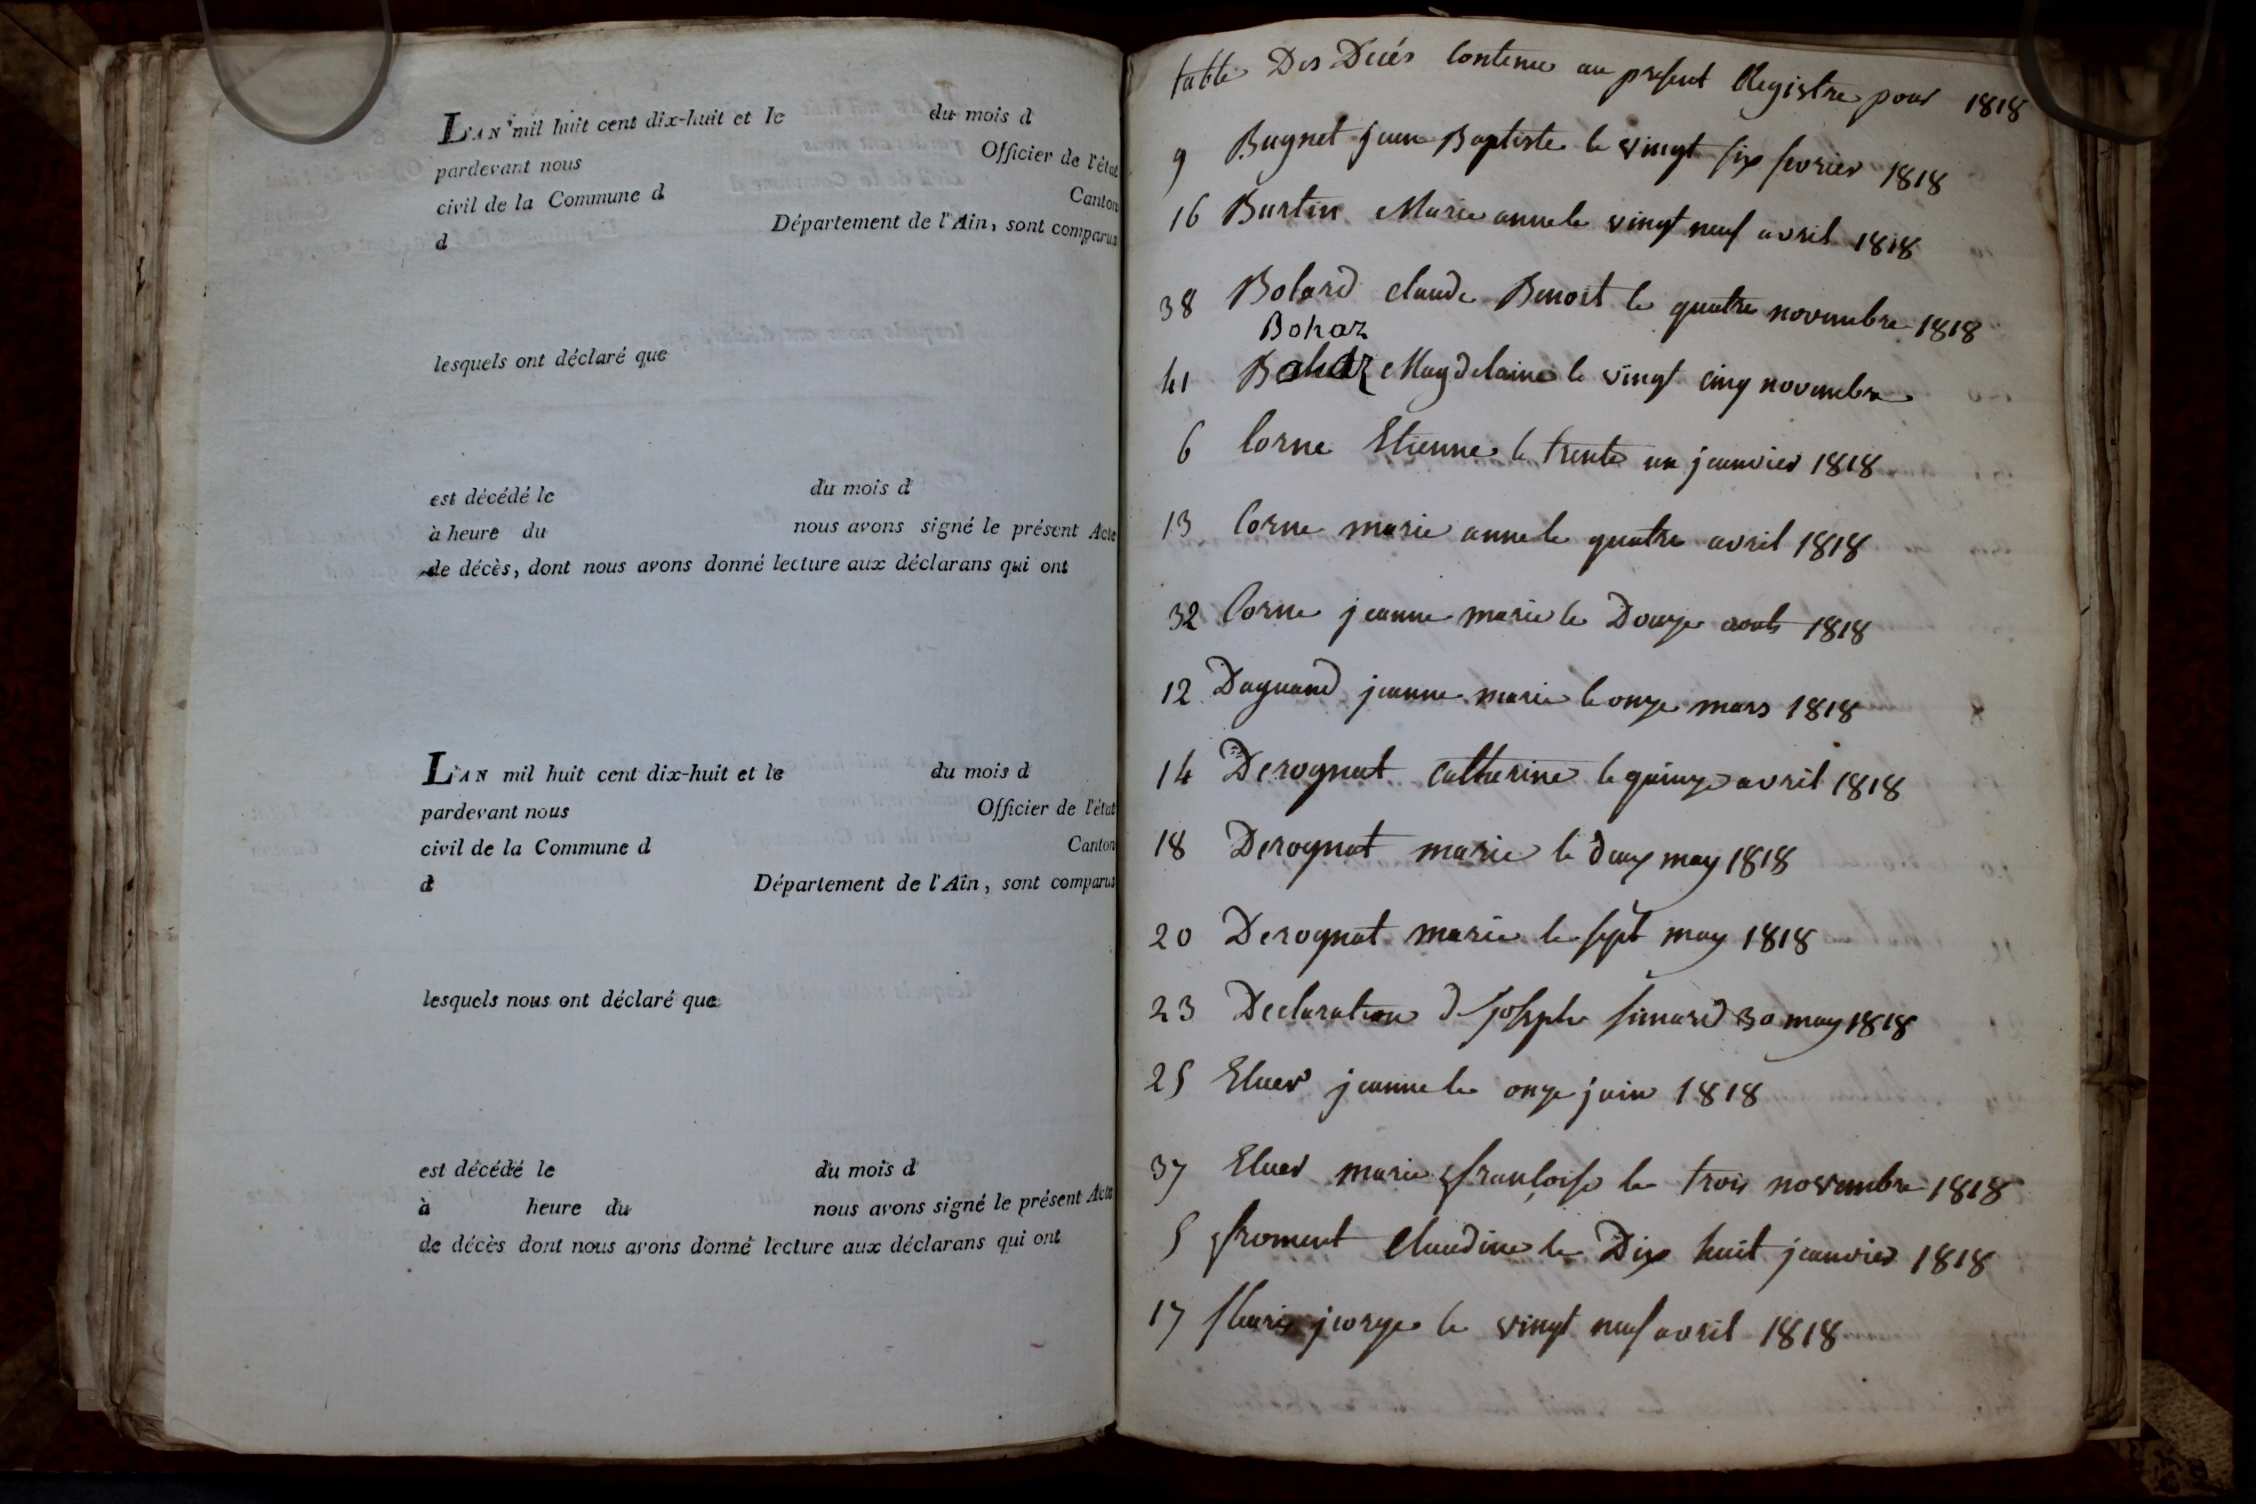 L'AN mil huit cent dix-huit et le du mois d
pardevant nous Officier de l'état
civil de la Commune d Canton
d Département de l'Ain, sont comparus
lesquels ont déclaré que
est décédé le du mois d
à heure du nous avons signé le présent Acte
de décès, dont nous avons donné lecture aux déclarans qui ont
L'AN mil huit cent dix-huit et le du mois d
pardevant nous Officier de l'état
civil de la Commune d Canton
d Département de l'Ain, sont comparus
lesquels nous ont déclaré que
est décédé le du mois d
à heure du nous avons signé le présent Acte
de décès dont nous avons donné lecture aux déclarans qui ont
table Des Décés Contenue au present Registre pour 1818
9 Bugnet jean Baptiste le vingt six fevrier 1818
16 Burtin Marie anne le vingt neuf avril 1818
38 Bolard claude Benoit le quatre novembre 1818
Bohaz
41 Bohaz Magdelaine le vingt cinq novembre
6 Corne Etienne le trente un janvier 1818
13 Corne marie anne le quatre avril 1818
32 Corne jeanne marie le Douze aout 1818
12 Daguand jeanne marie le onze mars 1818
14 Derognat catherine le quinze avril 1818
18 Derognat marie le deux may 1818
20 Derognat marie le sept may 1818
23 Declaration de Joseph simard 30 may 1818
25 Eluer jeanne le onze juin 1818
37 Eluer marie françoise le trois novembre 1818
5 froment Claudine le Dix huit janvier 1818
17 george le vingt neuf avril 1818